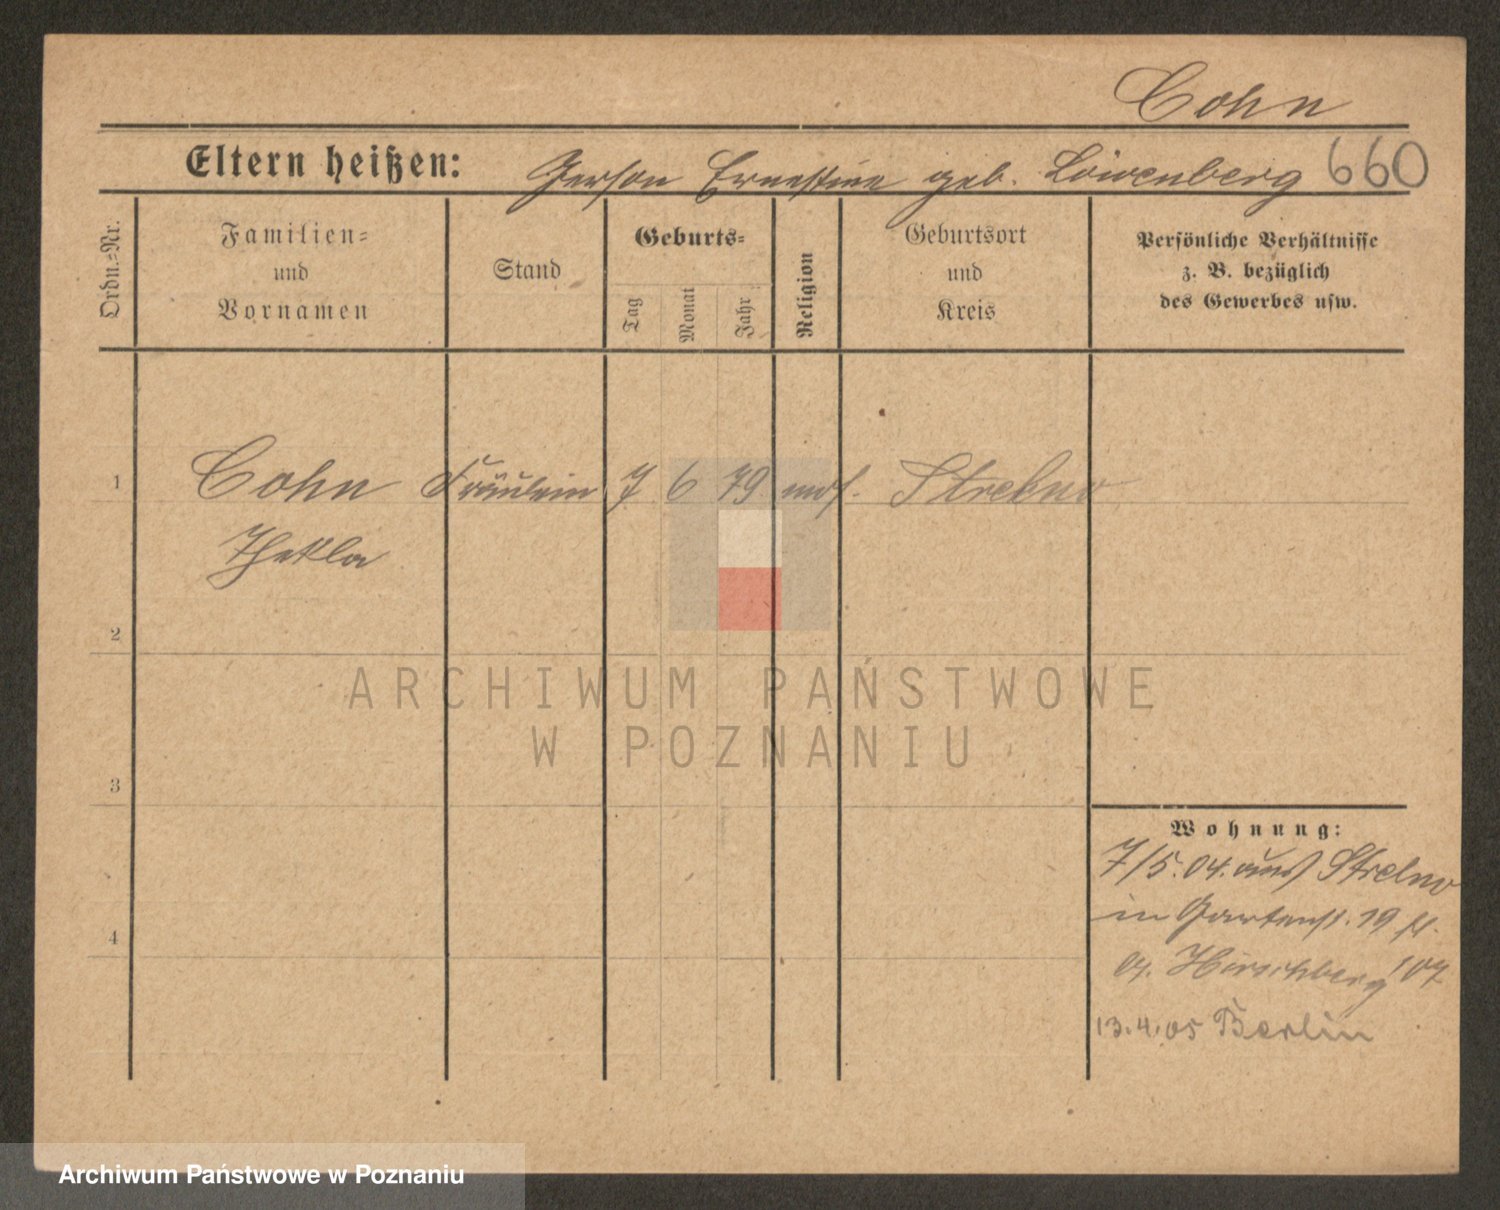 Cohn
Eltern heißen: Gerson Ernestine geb. Löwenberg 660
Ordn.=Nr.
Familien=
und
Vornamen
Stand
Geburts=
Tag
Monat
Jahr
Religion
Geburtsort
und
Kreis
Persönliche Verhältnisse
z. B. bezüglich
des Gewerbes usw.
1 Cohn Fräulein 7 6 79 mos. Strelno
Thekla
2
ARCHIWUM PAŃSTWOWE
W POZNANIU
3
Wohnung:
7/5.04. aus Strelno
in Gartenst. 19
4
Hirschberg
13.4.05 Berlin
Archiwum Państwowe w Poznaniu